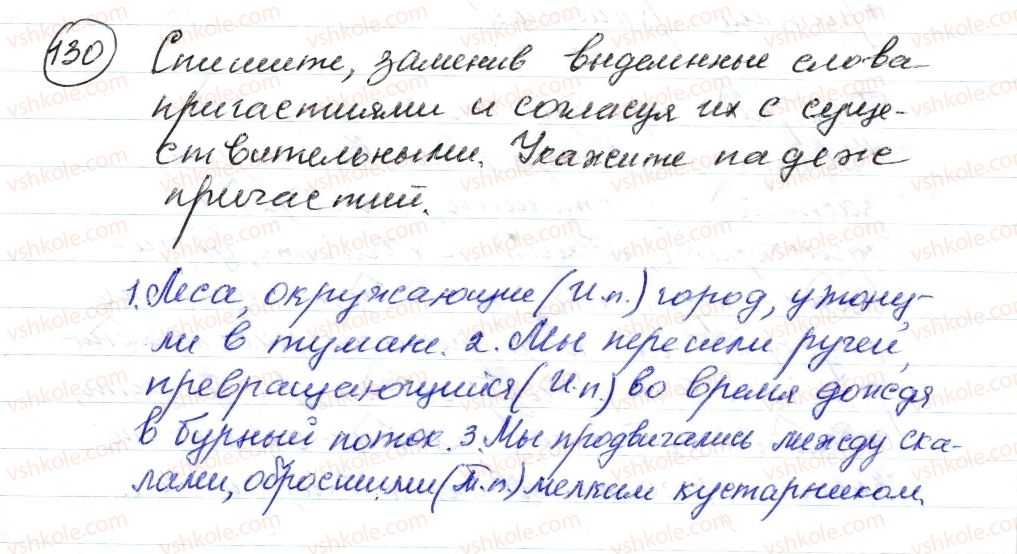 130 Спишите, заменив выделенные слова
причастиями и согласуя их с суще-
ствительными. Укажите падеж
причастий.
1. Леса, окружающие (И.п.) город, утону-
ли в тумане. 2. Мы перешли ручей,
превращающийся (И.п.) во время дождя
в бурный поток. 3. Мы продвигались между ска-
лами, обросшими (Т.п.) мелким кустарником.